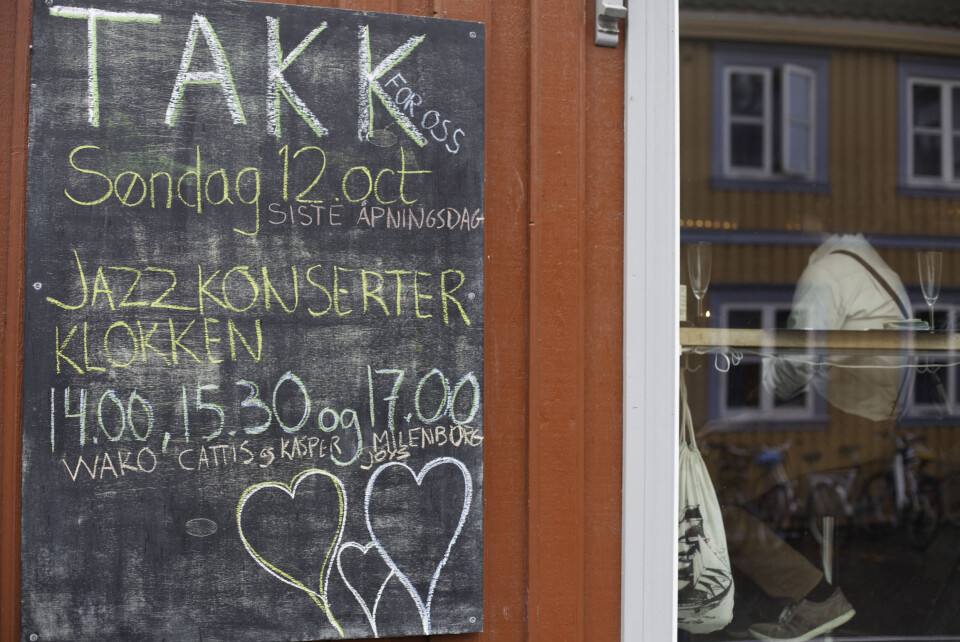 TAKK
FOR OSS
Søndag 12. oct
SISTE ÅPNINGSDAG
JAZZ KONSERTER
KLOKKEN
14.00, 15.30 og 17.00
WAKO CATTIS og KASPER MILENBORG
JOYS